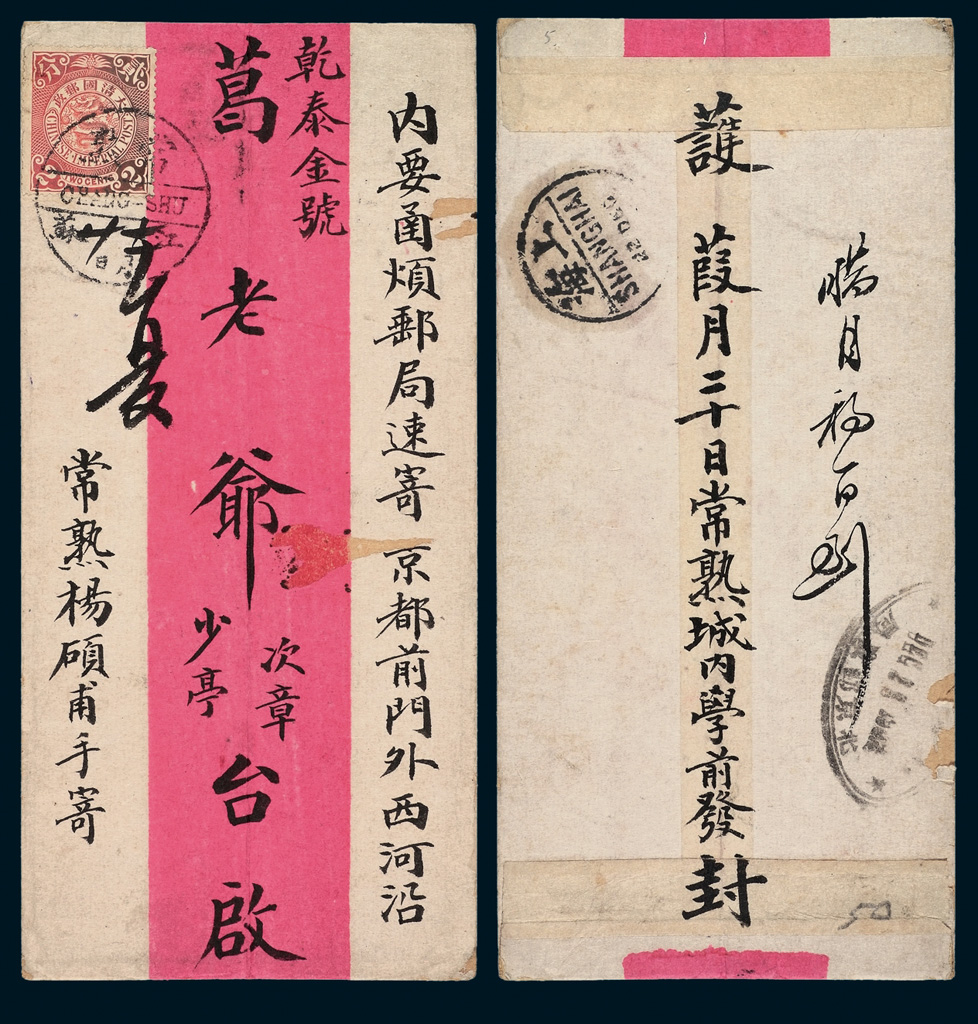 内要圅煩郵局速寄 京都前門外西河沿
乾泰金號
葛老爺 次章 少亭 台啟
常熟楊碩甫手寄
大清國郵政
貳分
CHINESE IMPERIAL POST
TWO CENTS
2
2
CHANG-SHU
江
日
護 葭月二十日常熟城內學前發 封
臘月初一日到
上海
SHANGHAI
22 DEC
北京
DEC 28
5